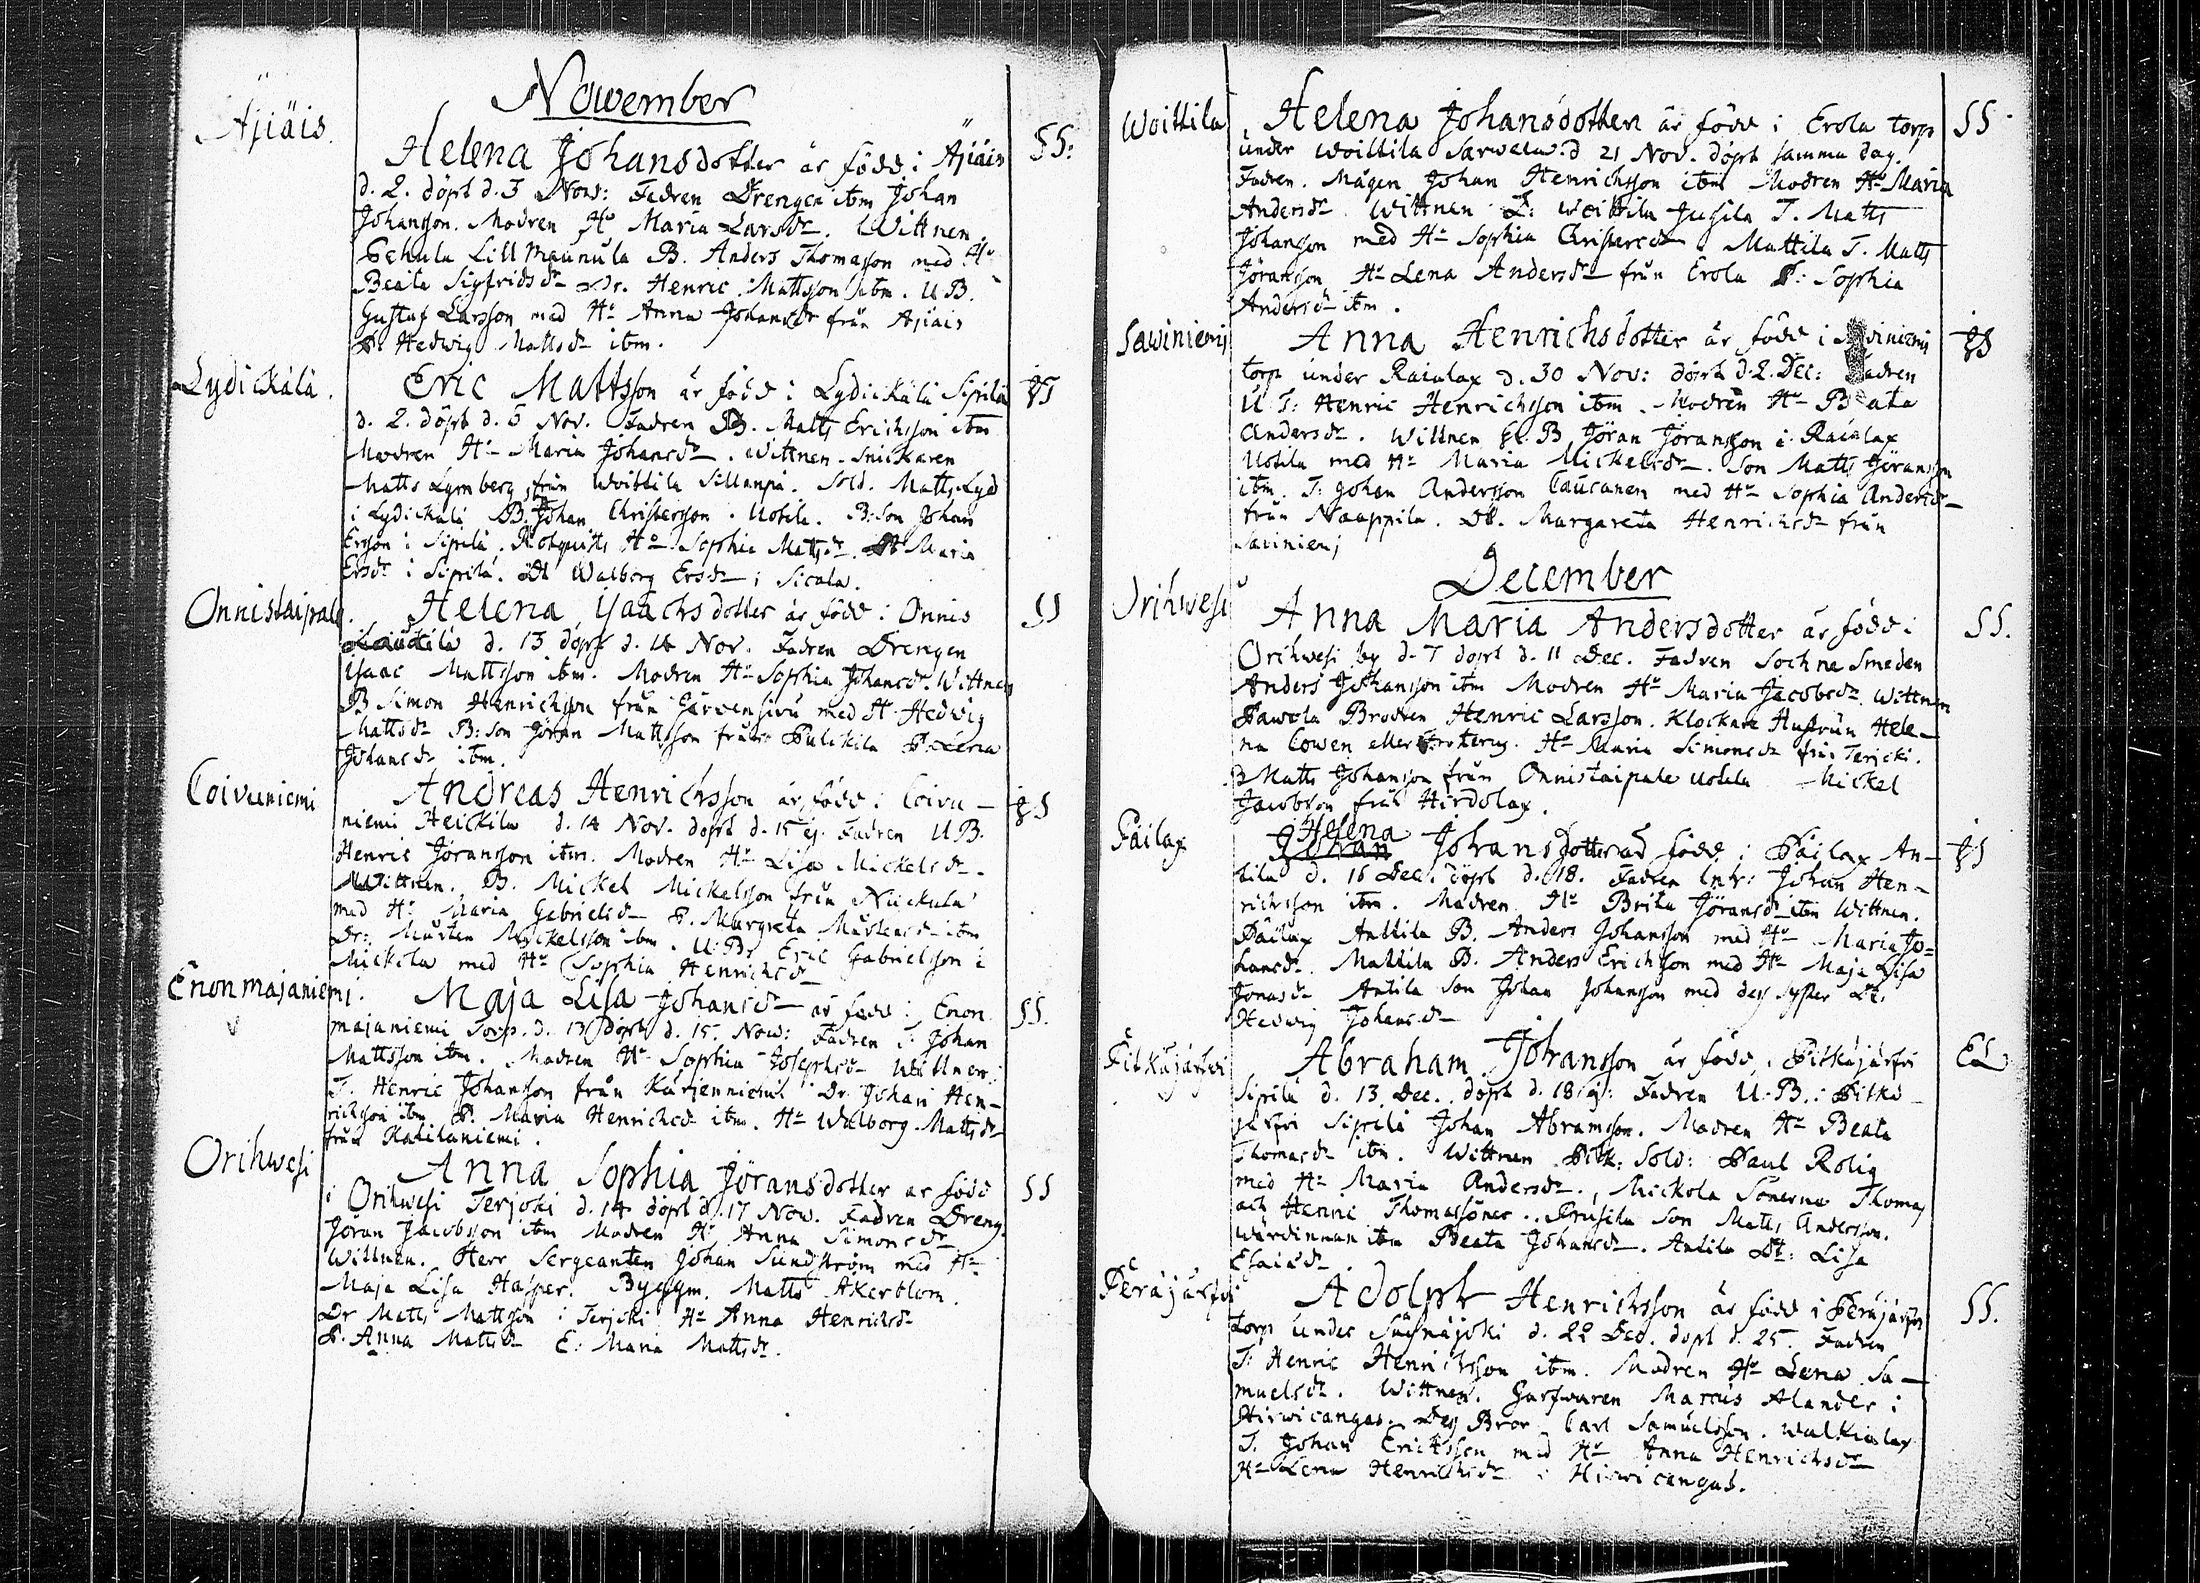 November
Äjiäis.
Helena Johansdotter är född i Äjiäis SS:
d. 2. döpt d. 3 Nov: Fadren Drengen ibm Johan
Johansson. Modren Hu Maria Larsdr. Wittnen.
Eehula Lill Maunula B. Anders Thomasson med Hu
Beata Sigfridsdr Dr. Henric Mattsson ibm. U B.
Gustaf Larsson med Hu Anna Johansdr från Äjiäis
P. Hedwig Mattsdr ibm.
Lydickälä.
Eric Mattsson är född i Lydickälä Sipilä
d. 2. döpt d. 5 Nov. Fadren B. Matts Erichsson ibm
Modren Hu Maria Johansdr. Wittnen. Snickaren
Matts Lymberg från Woittila Sillanpä. Sold. Matts Lyd
i Lydickälä B. Johan Christersson. Uotila. B: Son Johan
Ersson i Sipilä. Hu Sophia Mattsdr. Maria
Ersdr i Sipilä. Dt Walborg Ersdr i Sicala.
Onnistaipale.
Helena Isaachsdotter är född i Onnis SS
d. 13 döpt d. 14 Nov. Fadren Drengen
Isaac Mattsson ibm. Modren Hu Sophia Johansdr. Wittnen
B Simon Henrichsson från Järvensivu med H Hedvig
Mattsdr B: Son Jöran Mattsson från Pulikila P. Lena
Johansdr ibm.
Coivuniemi
Andreas Henrichsson är född i Coivu-
niemi Heickila d. 14 Nov. döpt d. 15 ej. Fadren U B.
Henric Jöransson ibm. Modren Hu Lisa Mickelsdr.
Wittnen. B. Mickel Mickelsson från Niickula
med Hu Maria Gabrielsdr P. Margreta Mårtensdr ibm
Dr: Mårten Mickelsson ibm. U: Br Eric Gabrielsson i
Mickola med Hu Sophia Henrichsdr
Enonmajaniemi.
Maja Lisa Johansdr är född i Enon SS.
majaniemi Torp. d. 13 döpt d. 15 Nov: Fadren T: Johan
Mattsson ibm. Modren Hu Sophia Josephsdr Wittnen:
T. Henric Johansson från Kärjenniemi Dr. Johan Hen-
richsson ibm P. Maria Henrichsdr ibm. Hu Walborg Mattsdr
från Kakilaniemi.
Orihwesi
Anna Sophia Jöransdotter är född SS
i Orihwesi Terjoki d. 14 döpt d. 17 Nov. Fadren Dreng.
Jöran Jacobsson ibm Modren Hu Anna Simonsdr
Wittnen. Herr Sergeanten Johan Sundström med Hu
Maja Lisa Hasper. Byggm. Matts Åkerblom.
Dr Matts Mattsson i Terjoki Hu Anna Henrichsdr
P. Anna Mattsdr E: Maria Mattsdr.
Woittila
Helena Johansdotter är född i Erola torp SS
under Woittila Sarwela d 21 Nov. döpt samma dag.
Fadren. Mågen Johan Henrichsson ibm Modren Hu Maria
Andersdr. Wittnen L: Woittila Jussila T. Matts
Johansson med Hu Sophia Christersdr. Mattila T. Matts
Jöransson Hu Lena Andersdr från Erola P: Sophia
Andersdr ibm.
Sawiniemi
Anna Henrichsdotter är född i Saviniemi
torp under Raialax d. 30 Nov: döpt d. 2. Dec: Fadren
U T: Henric Henrichsson ibm. Modren Hu Beata
Andersdr. Wittnen B. Jöran Jöransson i Raialax
Uotila med Hu Maria Mickelsdr. Son Matts Jöransson
ibm. T: Johan Andersson Caucanen med Hu Sophia Andersdr
från Naappila. Dt. Margareta Henrichsdr från
Saviniemj
December
Orihwesi
Anna Maria Andersdotter är född i SS.
Orihwesi by d. 7 döpt d. 11 Dec. Fadren Sochne Smeden
Anders Johansson ibm Modren Hu Maria Jacobsdr. Wittnen
Pawola Brodren Henric Larsson. Klockare Hustrun Hele-
na Cowen eller. Hu Maria Simonsdr från Terjoki.
Matts Johansson från Onnistaipale Uotila Mickel
Jacobsson från Hirdolax.
Päilax
Helena
Johan Johansdotter är född i Päilax An-
tila d. 16 Dec. döpt d. 18. Fadren Inh: Johan Hen-
richsson ibm. Modren Hu Brita Jöransdr ibm Wittnen.
Päilax Anttila B. Anders Johansson med Hu Maria Jo-
hansdr. Mattila B. Anders Erichsson med Hu Maja Lisa
Jonasdr Antila Son Johan Johansson med dess syster Dt.
Hedwig Johansdr
Pitkäjärfvi
Abraham Johansson är född i Pitkäjärfvi EL
Sipilä d. 13. Dec. döpt d. 18 ej: Fadren U. B. i Pitkä-
järfvi Sipilä Johan Abramsson. Modren Hu Beata
Thomasdr ibm. Wittnen Pitk: Sold: Paul Rolig
med Hu Maria Andersdr. Mickola Sönerne Thomas
och Henric Thomassöner. Prusila Son Matts Andersson.
Wärdinnan ibm Beata Johansdr. Antila Dt: Lisa
Esaiædr.
Peräjärfvi
Adolph Henrichsson är född i Peräjärfvi SS.
torp under Säynäjoki d. 22 Dec. döpt d. 25. Fadren
T: Henric Henrichsson ibm. Modren Hu Lena Sa-
muelsdr. Wittnen. Garfwaren Marcus Alander i
Hirvicangas. Dess Bror Carl Samuelsson. Walkialax
T. Johan Erichsson med Hu Anna Henrichsdr
Hu Lena Henrichsdr i Hirvicangas.